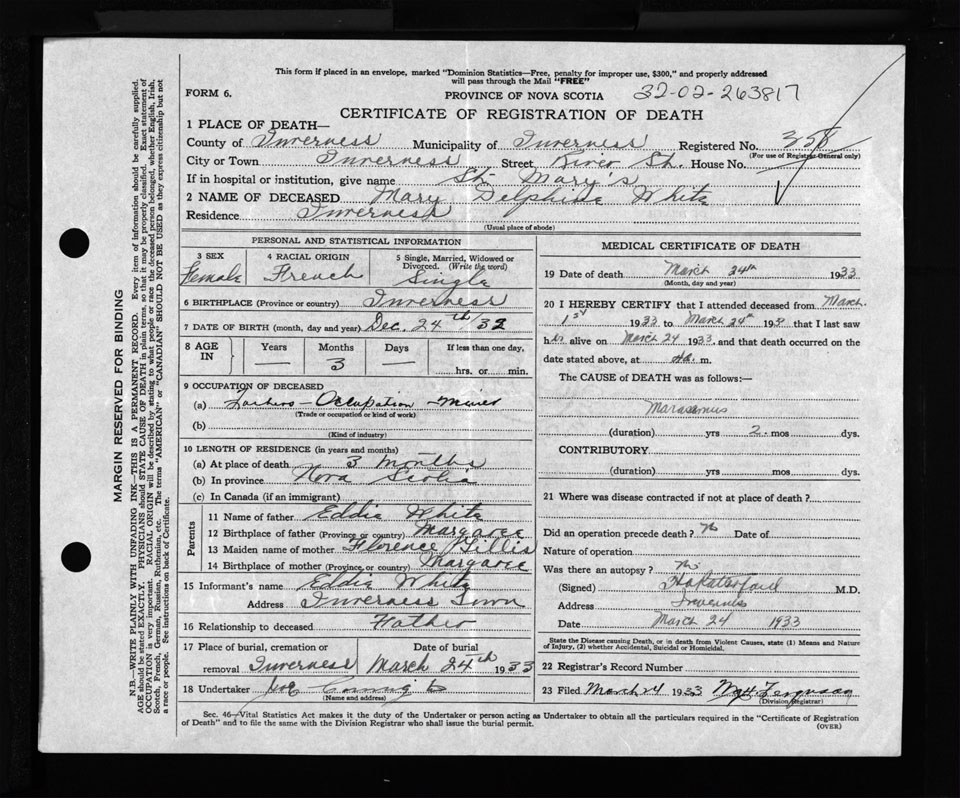 This form if placed in an envelope, marked "Dominion Statistics—Free, penalty for improper use, $300," and properly addressed
will pass through the Mail "FREE"
FORM 6.
PROVINCE OF NOVA SCOTIA 32-02-263817
CERTIFICATE OF REGISTRATION OF DEATH
1 PLACE OF DEATH—
County of Inverness Municipality of Inverness Registered No. 358
(For use of Registrar-General only)
City or Town Inverness Street River St. House No.
If in hospital or institution, give name St. Mary's
2 NAME OF DECEASED Mary Delphine White
Residence Inverness
(Usual place of abode)
PERSONAL AND STATISTICAL INFORMATION
3 SEX 4 RACIAL ORIGIN 5 Single, Married, Widowed or
Divorced. (Write the word)
Female French Single
6 BIRTHPLACE (Province or country) Inverness
7 DATE OF BIRTH (month, day and year) Dec. 24th / 32
8 AGE IN Years Months Days If less than one day,
— 3 — hrs. or min.
9 OCCUPATION OF DECEASED
(a) Fathers - Occupation - Miner
(Trade or occupation or kind of work)
(b)
(Kind of industry)
10 LENGTH OF RESIDENCE (in years and months)
(a) At place of death 3 Months
(b) In province Nova Scotia
(c) In Canada (if an immigrant)
Parents
11 Name of father Eddie White
12 Birthplace of father (Province or country) Margaree
13 Maiden name of mother Florence Gillis
14 Birthplace of mother (Province, or country) Margaree
15 Informant's name Eddie White
Address Inverness Town
16 Relationship to deceased Father
17 Place of burial, cremation or Date of burial
removal Inverness March 24th 1933
18 Undertaker Joe
(Name and address)
MEDICAL CERTIFICATE OF DEATH
19 Date of death March 24th 1933
(Month, day and year)
20 I HEREBY CERTIFY that I attended deceased from March
1st 1933 to March 24th 193 that I last saw
her alive on March 24 1933, and that death occurred on the
date stated above, at m.
The CAUSE of DEATH was as follows:—
Marasmus
(duration) yrs 2 mos dys.
CONTRIBUTORY.
(duration) yrs mos dys.
21 Where was disease contracted if not at place of death?
Did an operation precede death? No Date of
Nature of operation
Was there an autopsy? No
(Signed) M.D.
Address Inverness
Date March 24 1933
State the Disease causing Death, or in death from Violent Causes, state (1) Means and Nature
of Injury, (2) whether Accidental, Suicidal or Homicidal.
22 Registrar's Record Number
23 Filed March 24 1933 Ferguson
(Division Registrar)
Sec. 46—Vital Statistics Act makes it the duty of the Undertaker or person acting as Undertaker to obtain all the particulars required in the "Certificate of Registration
of Death" and to file the same with the Division Registrar who shall issue the burial permit.
(OVER)
MARGIN RESERVED FOR BINDING
N.B.—WRITE PLAINLY WITH UNFADING INK—THIS IS A PERMANENT RECORD. Every item of information should be carefully supplied.
AGE should be stated EXACTLY. PHYSICIANS should STATE CAUSE OF DEATH in plain terms, so that it may be properly classified. Exact statement of
OCCUPATION is very important. RACIAL ORIGIN will be described by stating to what people or race the deceased person belonged, whether English, Irish,
Scotch, French, German, Russian, Ruthenian, etc. The terms "AMERICAN" or "CANADIAN" SHOULD NOT BE USED as they express citizenship but not
a race or people. See instructions on back of Certificate.